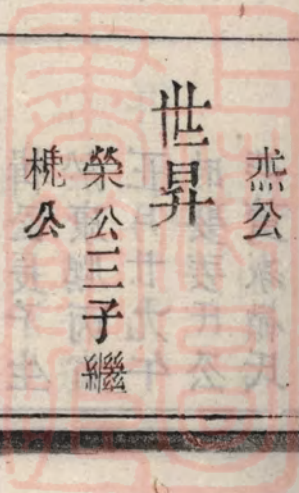 烝公
世昇
榮公三子繼
桃公